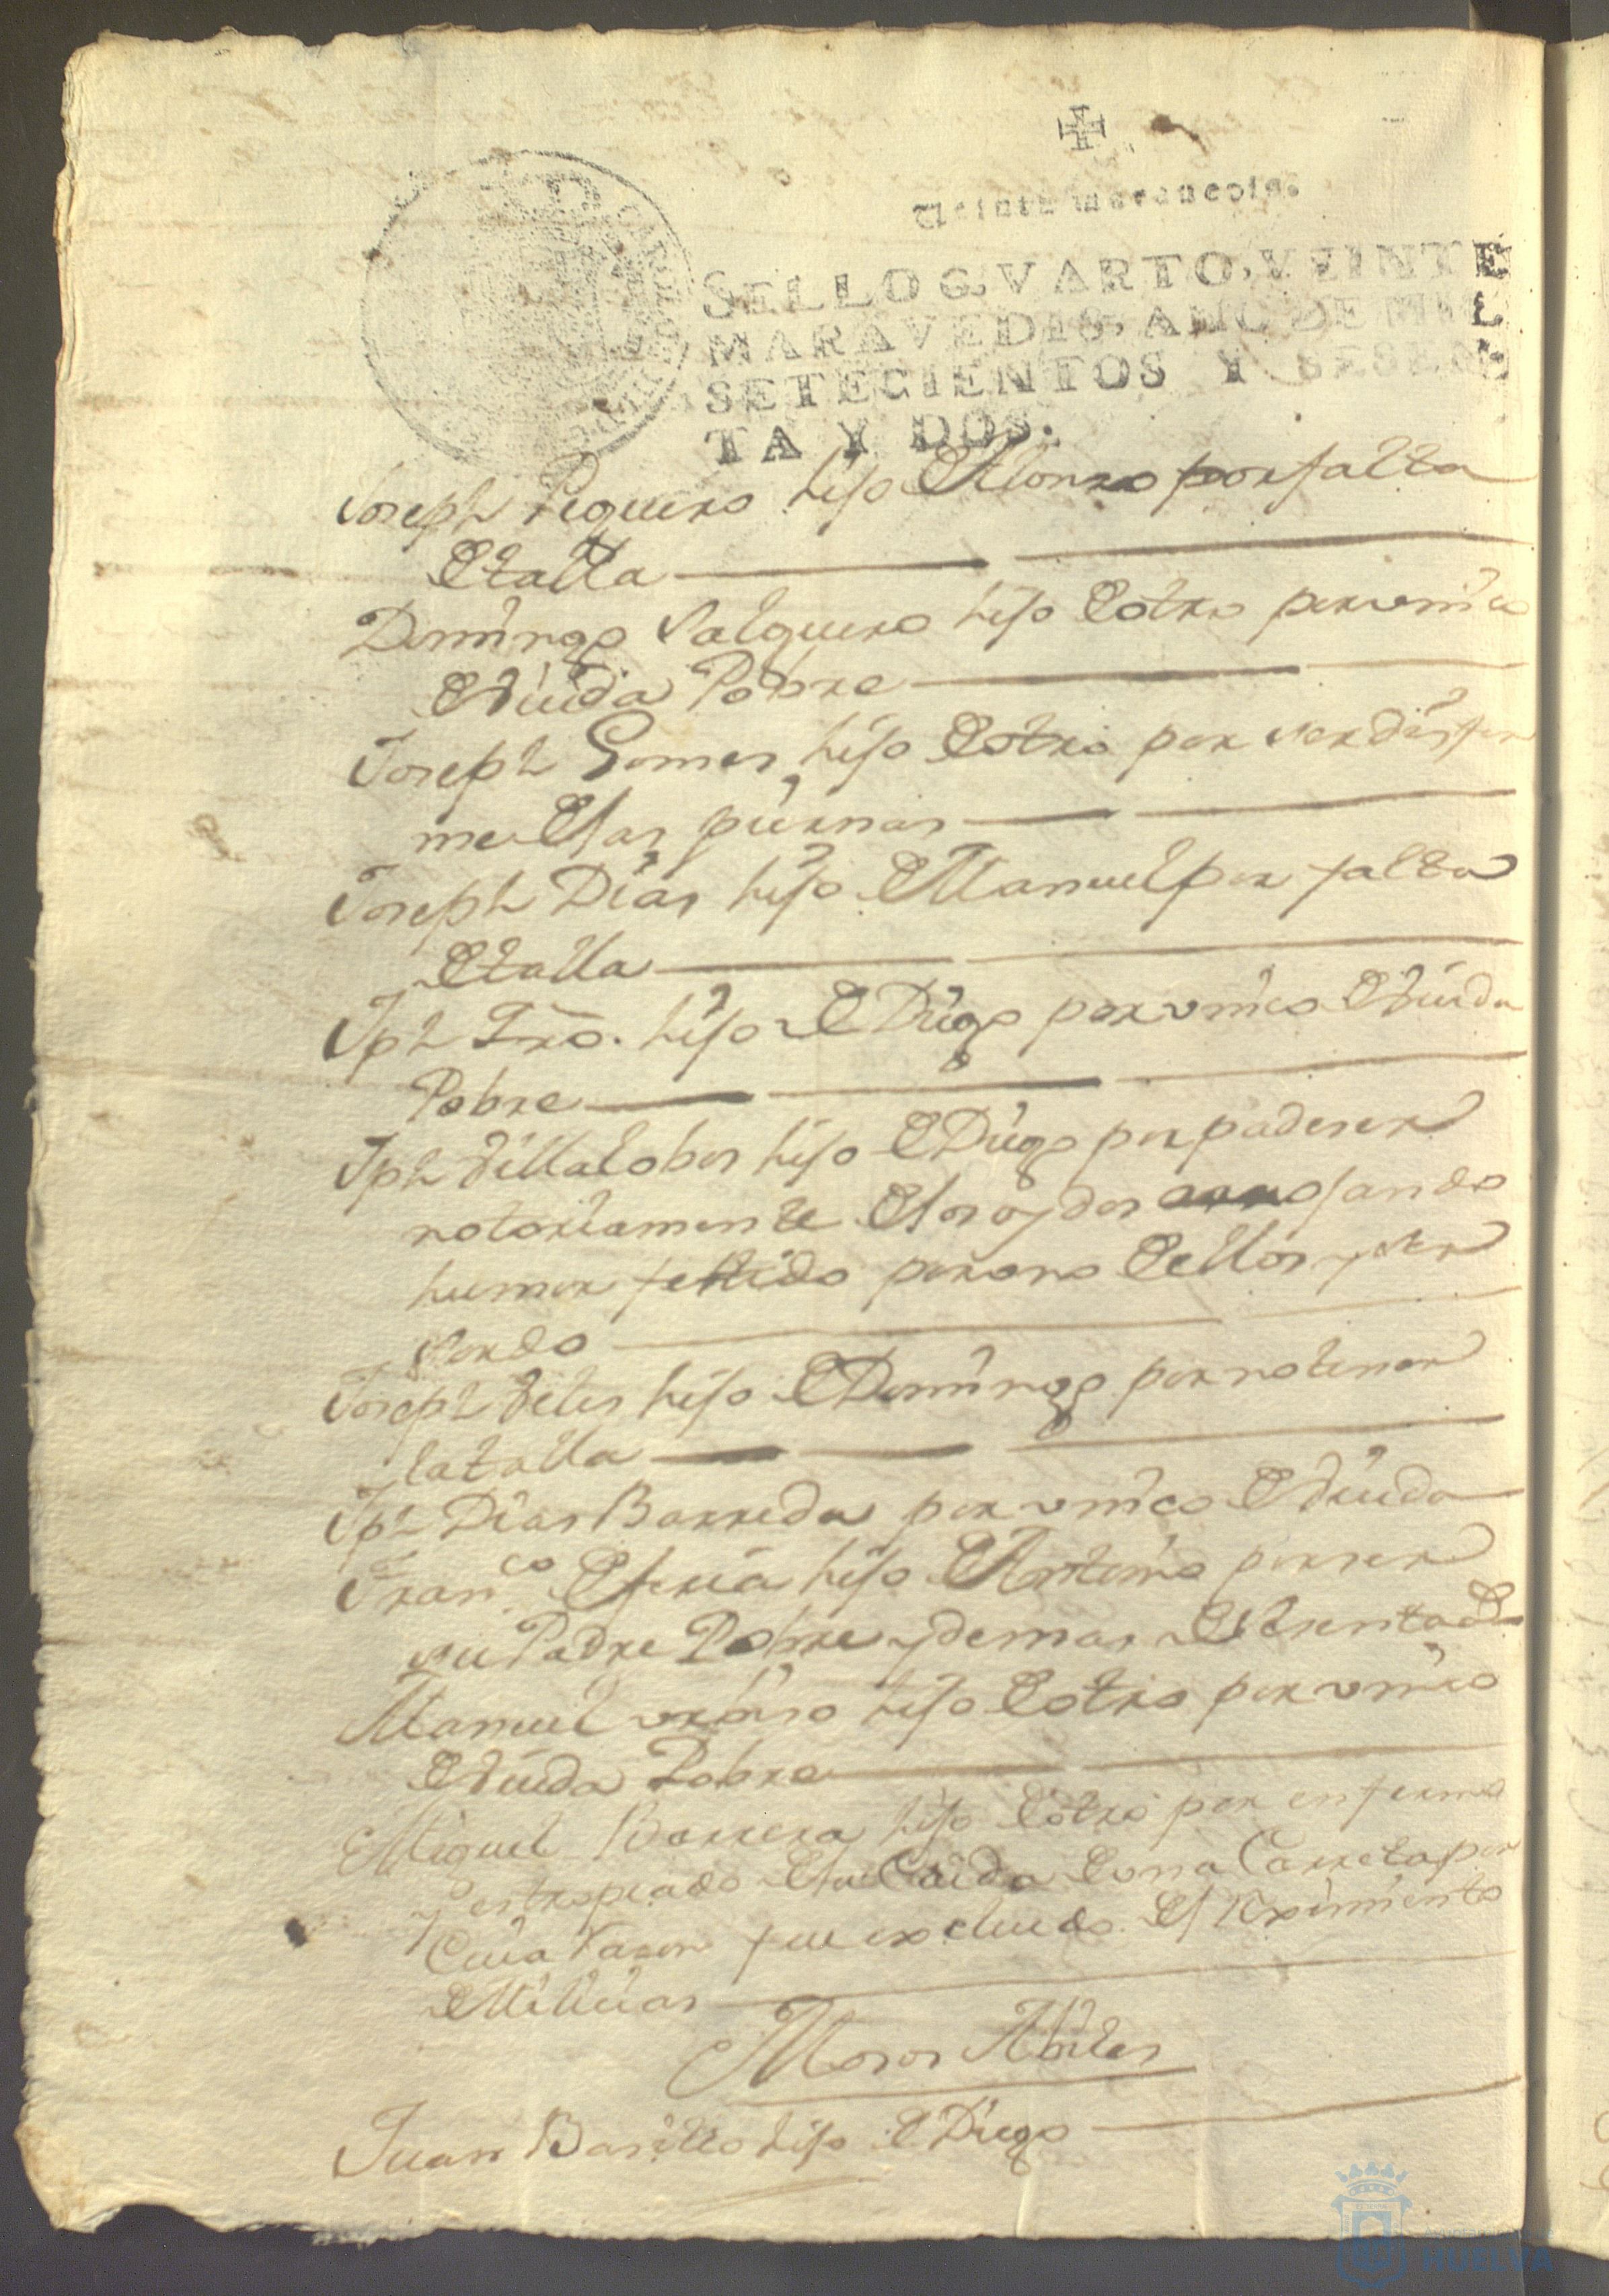 Veinte maravedis.
SELLO QVARTO, VEINTE
MARAVEDIS, AÑO DE MIL
SETECIENTOS Y SESEN
TA Y DOS.
Joseph Peguero hijo de Alonso por falta
de talla
Domingo Salguero hijo de otro por vnico
de viuda Pobre
Joseph Gomes hijo de otro por ser disfor
me de las piernas
Joseph Dias hijo de Manuel por falta
de talla
Jph hijo de Diego por vnico de viuda
Pobre
Jph Villalobos hijo de Diego por padeser
notoriamente de los oydos arrojando
humor fettido por vno de ellos y ser
sordo
Joseph Veles hijo de Domingo por no tener
la talla
Jph Dias Barreda por vnico de viuda
Franco de feria hijo de Antonio por ser
su Padre Pobre y demas de sesenta as
Manuel hijo de otro por vnico
de viuda Pobre
Miguel Barrera hijo de otro por enfermo
y estropeado de la Caida de vna Carreta por
Cuia rason fue excluido del reximiento
de Milicias
Mosos Abiles
Juan Basillo hijo de Diego
HUELVA